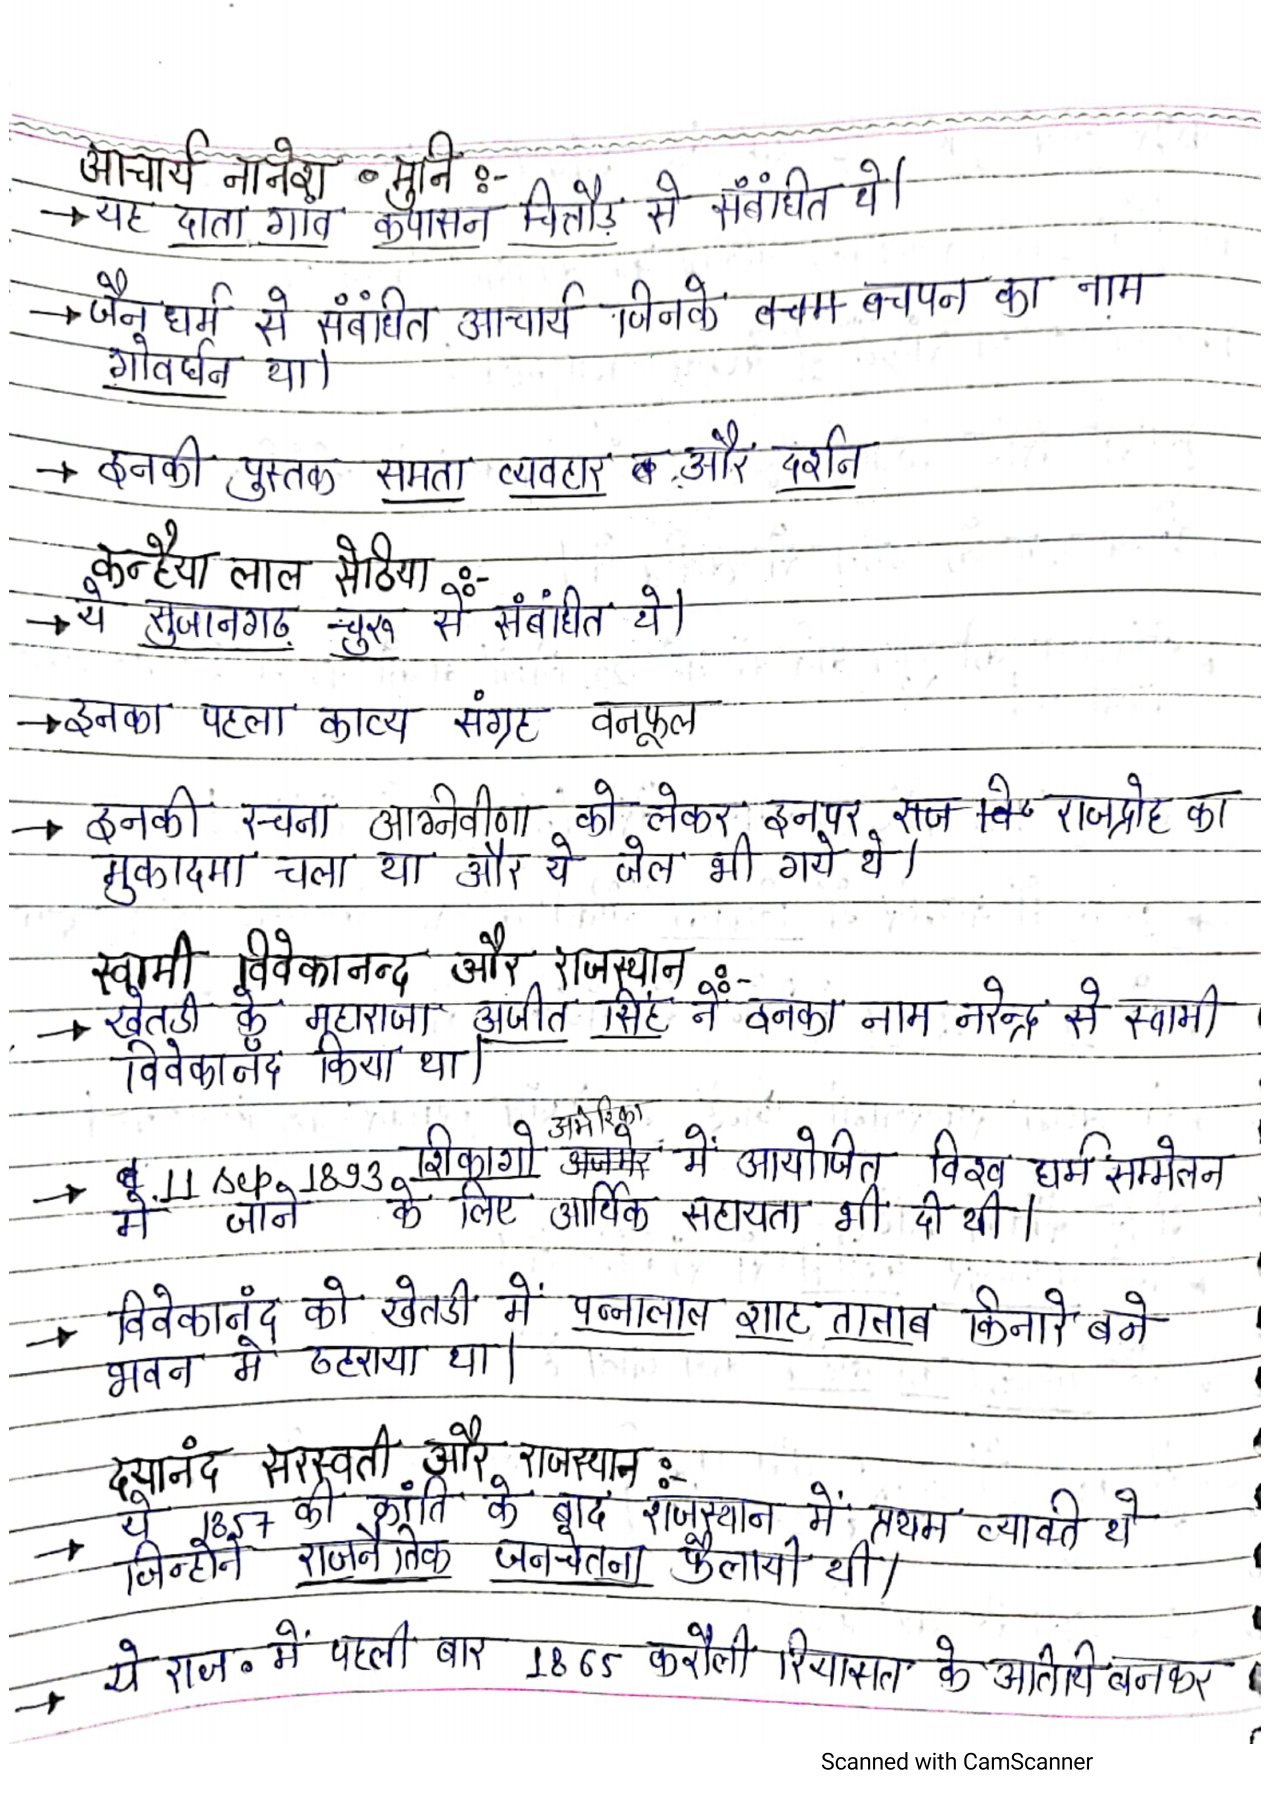 आचार्य नानेश मुनि :-
→ यह दाता गांव कपासन चितौड़ से संबंधित थे।
→ जैन धर्म से संबंधित आचार्य जिनके बचम बचपन का नाम
गोवर्धन था।
→ इनकी पुस्तक समता व्यवहार और दर्शन
कन्हैया लाल सेठिया :-
→ ये सुजानगढ़ चुरू से संबंधित थे।
→ इनका पहला काव्य संग्रह वनफूल
→ इनकी रचना अग्निवीणा को लेकर इनपर राज राजद्रोह का
मुकादमा चला था और ये जेल भी गये थे।
स्वामी विवेकानन्द और राजस्थान :-
→ खेतडी के महाराजा अजीत सिंह नें इनका नाम नरेन्द्र से स्वामी
विवेकानंद किया था।
अमेरिका
→ 11 Sep. 1893 शिकागो अजमेर में आयोजित विश्व धर्म सम्मेलन
में जाने के लिए आर्थिक सहायता भी दी थी।
→ विवेकानंद को खेतडी में पन्नालाल शाह तालाब किनारे बने
भवन में ठहराया था।
दयानंद सरस्वती और राजस्थान :-
→ ये 1857 की क्रांति के बाद राजस्थान में प्रथम व्यक्ति थे
जिन्होने राजनैतिक जनचेतना फैलायी थी।
→ ये राज. में पहली बार 1865 करौली रियासत के अतिथि बनकर
Scanned with CamScanner